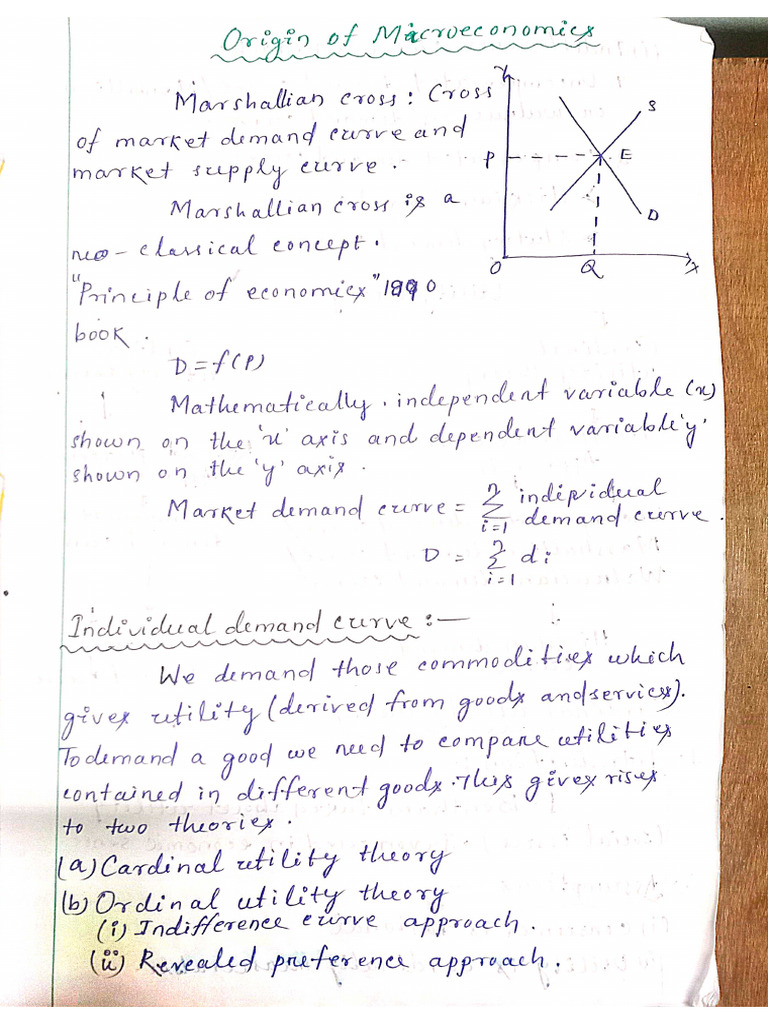 Origin of Macroeconomics
Marshallian cross: Cross
of market demand curve and
market supply curve.
Marshallian cross is a
neo-classical concept.
"Principle of economics" 1890
book.
Y
S
P
E
D
O
Q
X
D = f(P)
Mathematically. independent variable (x)
shown on the 'x' axis and dependent variable 'y'
shown on the 'y' axis.
Market demand curve = n∑i=1 individual demand curve.
D = n∑i=1 di
Individual demand curve :—
We demand those commodities which
gives utility (derived from goods and services).
To demand a good we need to compare utilities
contained in different goods. This gives rises
to two theories.
(a) Cardinal utility theory
(b) Ordinal utility theory
(i) Indifference curve approach
(ii) Revealed preference approach.